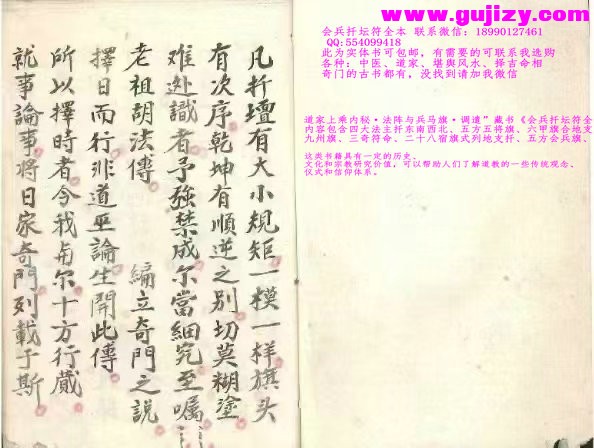 www.gujizy.com
会兵扦坛符全本 联系微信：18990127461
QQ:554099418
此为实体书可包邮，有需要的可联系我选购
各种：中医、道家、堪舆风水、择吉命相
奇门的古书都有，没找到请加我微信
道家上乘内秘·法阵与兵马旗·调遣”藏书《会兵扦坛符全
内容包含四大法主扦东南西北、五方五将旗、六甲旗合地支
九州旗、三奇符命、二十八宿旗式列地支扦、五方会兵旗、
这类书籍具有一定的历史、
文化和宗教研究价值，可以帮助人们了解道教的一些传统观念、
仪式和信仰体系。
凡扦壇有大小規矩一模一样旗头
有次序乾坤有順逆之别切莫糊塗
难逊識者予強禁成尔當細究至囑
老祖胡法傳 編立奇門之説
擇日而行非道巫論生開此傳
所以擇時者今我与尔十方行蔵
就事論事将日家奇門列載于斯